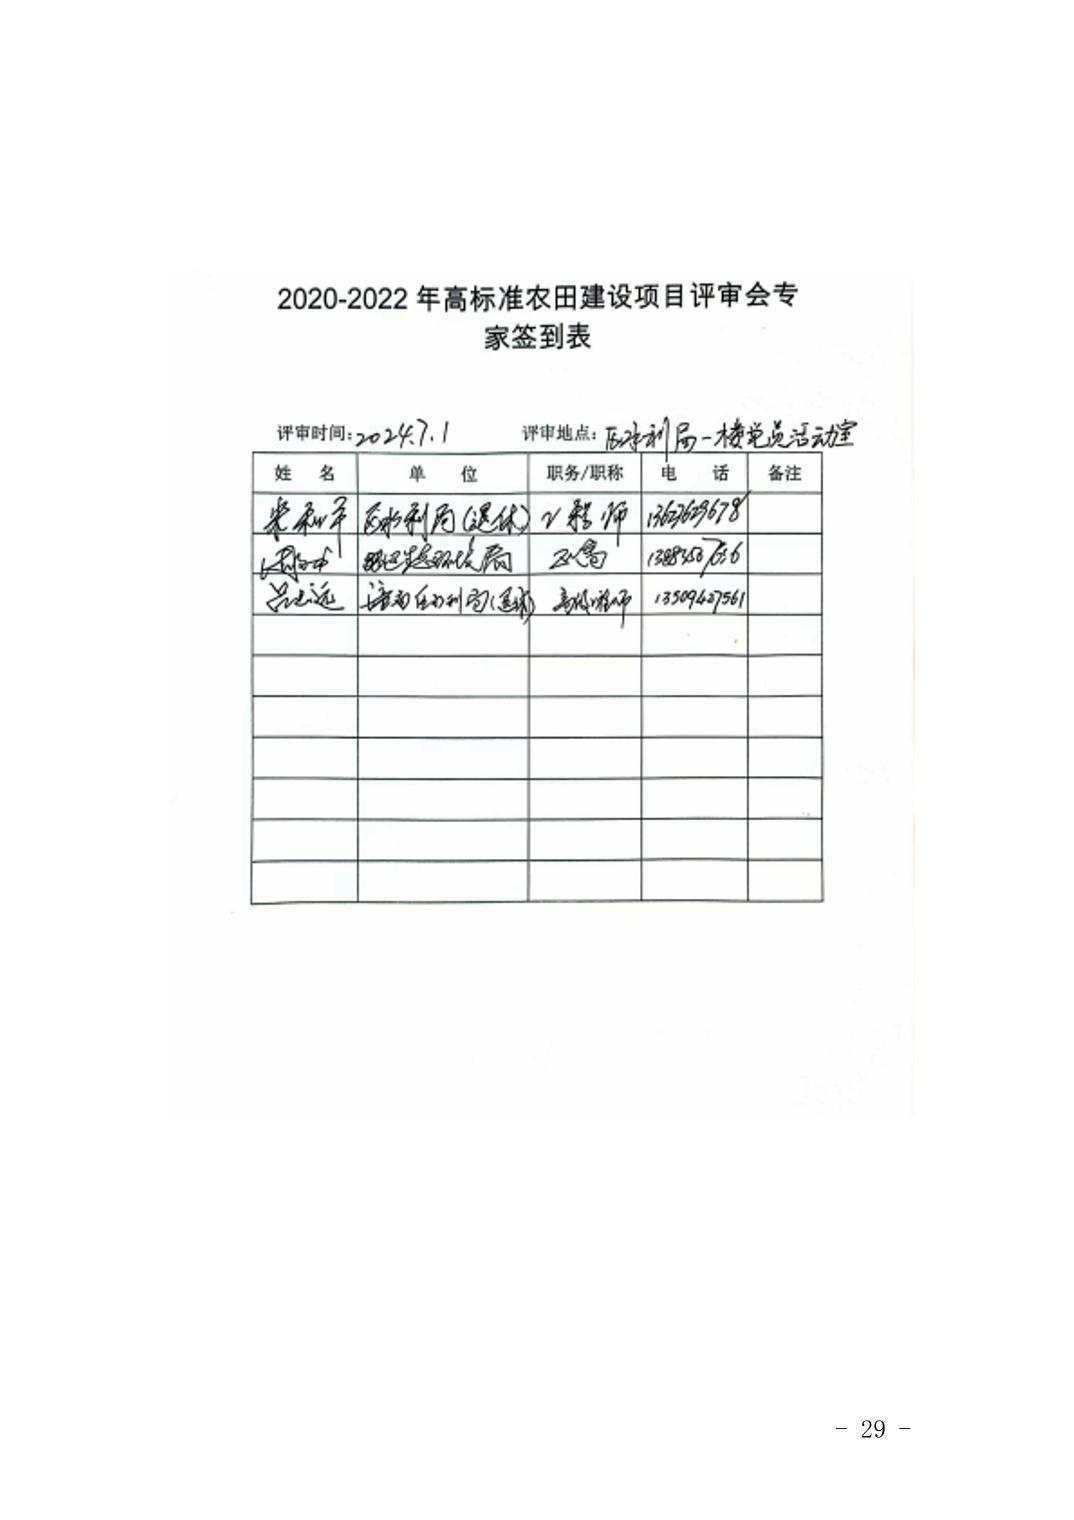 2020-2022 年高标准农田建设项目评审会专
家签到表
评审时间:2024.7.1 评审地点: 区水利局一楼党员活动室
姓 名 单 位 职务/职称 电 话 备注
区水利局(退休) 工程师 13627629678
局 正高
吕志远 水利局(退休) 高级工程师 13509427561
- 29 -